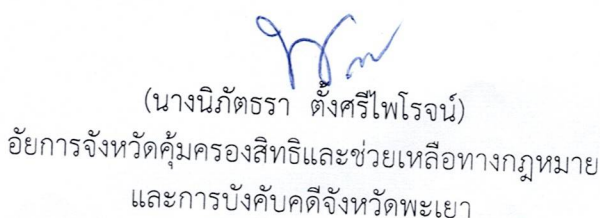 (นางนิภัตธรา ตั้งศรีไพโรจน์)
อัยการจังหวัดคุ้มครองสิทธิและช่วยเหลือทางกฎหมาย
และการบังคับคดีจังหวัดพะเยา